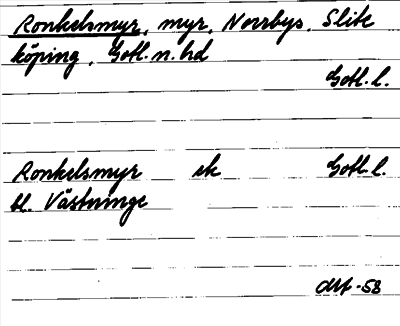 Ronkelsmyr, myr, Norrbys, Slite
köping, Gotl. n. hd
Gotl. l.
Ronkelsmyr ek Gotl. l.
bl. Västringe
-58